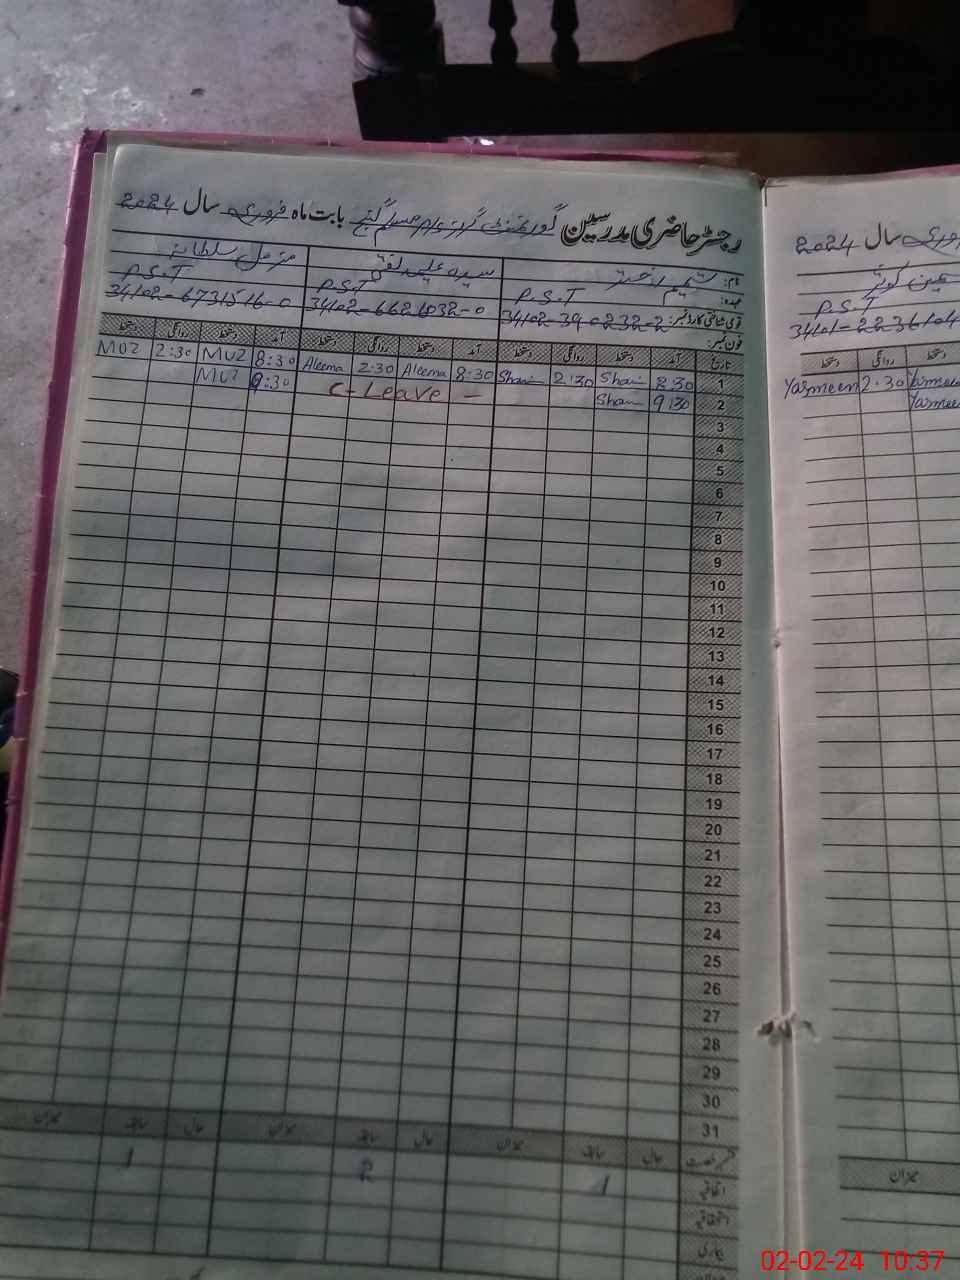 رجسٹر حاضری مدرسین گورنمنٹ گرلز بابت ماہ فروری سال 2024
نام: شمیم اختر سیدہ علیمہ نقی مزمل سلطانہ
عہدہ: P.S.T P.S.T P.S.T
قومی شناختی کارڈ نمبر: 34102-390232-2 34102-6621032-0 34102-6731516-0
فون نمبر:
تاریخ آمد دستخط روانگی دستخط آمد دستخط روانگی دستخط آمد دستخط روانگی دستخط
1 8:30 Sham 2:30 Sham 8:30 Aleema 2:30 Aleema 8:30 MUZ 2:30 MUZ
2 9:30 Sham C-Leave - 9:30 MUZ
3
4
5
6
7
8
9
10
11
12
13
14
15
16
17
18
19
20
21
22
23
24
25
26
27
28
29
30
31
قسم رخصت حال سابقہ میزان حال سابقہ میزان حال سابقہ میزان
اتفاقیہ 1 2 1
استحقاقیہ
بیماری
فروری سال 2024
کوثر
P.S.T
34101-2236104
دستخط روانگی دستخط
Yasmeen 2:30 Yasmeen
Yasmeen
میزان
02-02-24 10:37